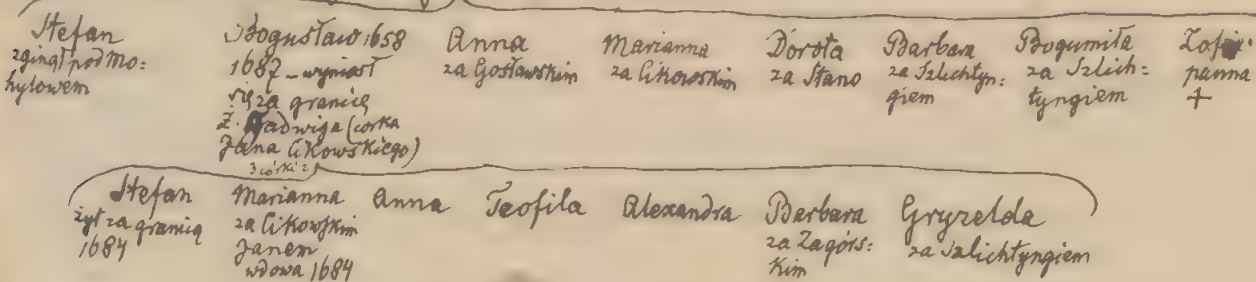 Stefan
zginął pod Mo:
hylowem
Bogusław 1658
1687 – wyniósł
się za granicę
Ż. Jadwiga (córka
Jana Cikowskiego)
Anna
za Gosławskim
Marianna
za Cikowskim
Dorota
za Stano
Barbara
za Szlichtyn:
giem
Bogumiła
za Szlich:
tyngiem
Zofia
panna
+
3 córki z
Stefan
żył za granicą
1684
Marianna
za Cikowskim
Janem
wdowa 1684
Anna
Teofila
Alexandra
Barbara
za Zagórs:
kim
Gryzelda
za Szlichtyngiem